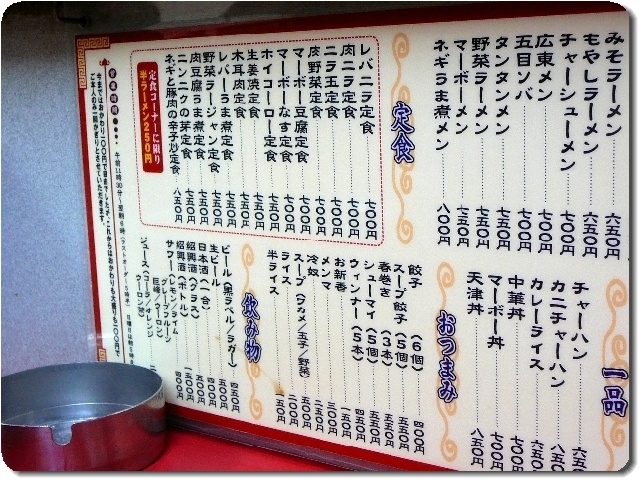 みそラーメン 六五〇円
もやしラーメン 六五〇円
チャーシューメン 七五〇円
広東メン 七〇〇円
五目ソバ 七〇〇円
タンタンメン 七五〇円
野菜ラーメン 七五〇円
マーボーメン 七五〇円
ネギうま煮メン 八〇〇円
定食
レバニラ定食 七〇〇円
肉ニラ定食 七〇〇円
ニラ玉定食 七〇〇円
肉野菜定食 七〇〇円
マーボー豆腐定食 七〇〇円
マーボーなす定食 七〇〇円
ホイコーロー定食
生姜焼定食
木耳肉定食 七五〇円
レバーうま煮定食
野菜ラージャン定食 七五〇円
肉豆腐うま煮定食
ニンニクの芽定食
ネギと豚肉の辛子炒定食 八五〇円
定食コーナーに限り
半ラーメン250円
営業時間 午前11時30分〜翌朝6時
今まではおかわり一〇〇円で
ご本人のみ一回かぎりとさせていただきます。
一品
チャーハン 六五
カニチャーハン
カレーライス 六五〇
中華丼 七〇〇円
マーボー丼
天津丼 八五〇
おつまみ
餃子(6個) 四〇〇円
スープ餃子(5個) 五五〇円
春巻き(3本)
シューマイ(5個)
ウィンナー(5本)
お新香 一五〇円
メンマ
冷奴
スープ(ワカメ/玉子/野菜)
ライス 二〇〇円
半ライス 一五〇円
飲み物
ビール(黒ラベル/ラガー) 四五〇円
生ビール
日本酒(一合)
紹興酒(グラス)
紹興酒(ボトル)
サワー(レモン/ライム
グレープフルーツ
巨峰/ウーロン) 四〇〇円
ジュース(コーラ/オレンジ
ウーロン茶)